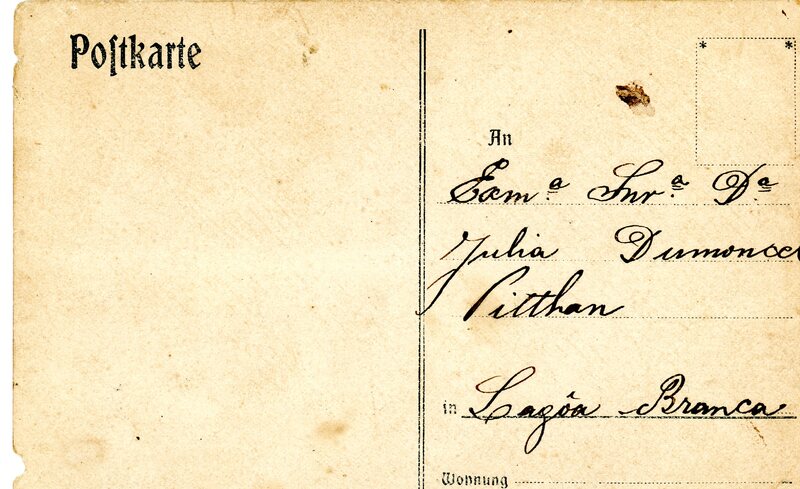 Poſtkarte
An
Exm.ª Snr.ª Dª
Julia Dumoncel
Pitthan
in Lagôa Branca
Wohnung